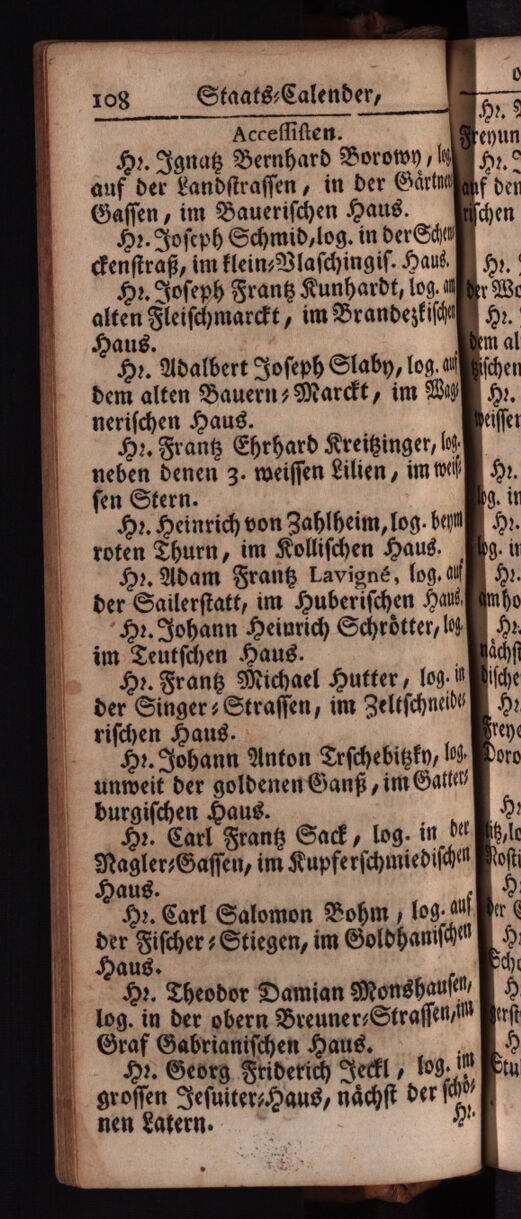 108 Staats-Calender,
Accessisten.
Hr. Ignatz Bernhard Borowy, log.
auf der Landstrassen, in der Gärtner
Gassen, im Bauerischen Haus.
Hr. Joseph Schmid, log. in der Schen-
ckenstraß, im klein-Vlaschingis. Haus.
Hr. Joseph Frantz Kunhardt, log. am
alten Fleischmarckt, im Brandezkischen
Haus.
Hr. Adalbert Joseph Slaby, log. auf
dem alten Bauern-Marckt, im Wag-
nerischen Haus.
Hr. Frantz Ehrhard Kreitzinger, log.
neben denen 3. weissen Lilien, im weis-
sen Stern.
Hr. Heinrich von Zahlheim, log. beym
roten Thurn, im Kollischen Haus.
Hr. Adam Frantz Lavigné, log. auf
der Sailerstatt, im Huberischen Haus.
Hr. Johann Heinrich Schrötter, log.
im Teutschen Haus.
Hr. Frantz Michael Hutter, log. in
der Singer-Strassen, im Zeltschneide-
rischen Haus.
Hr. Johann Anton Trschebitzky, log.
unweit der goldenen Ganß, im Gatter-
burgischen Haus.
Hr. Carl Frantz Sack, log. in der
Nagler-Gassen, im Kupferschmiedischen
Haus.
Hr. Carl Salomon Bohm, log. auf
der Fischer-Stiegen, im Goldhanischen
Haus.
Hr. Theodor Damian Monshausen,
log. in der obern Breuner-Strassen, im
Graf Gabrianischen Haus.
Hr. Georg Friderich Jeckl, log. im
grossen Jesuiter-Haus, nächst der schö-
nen Latern.
Hr.